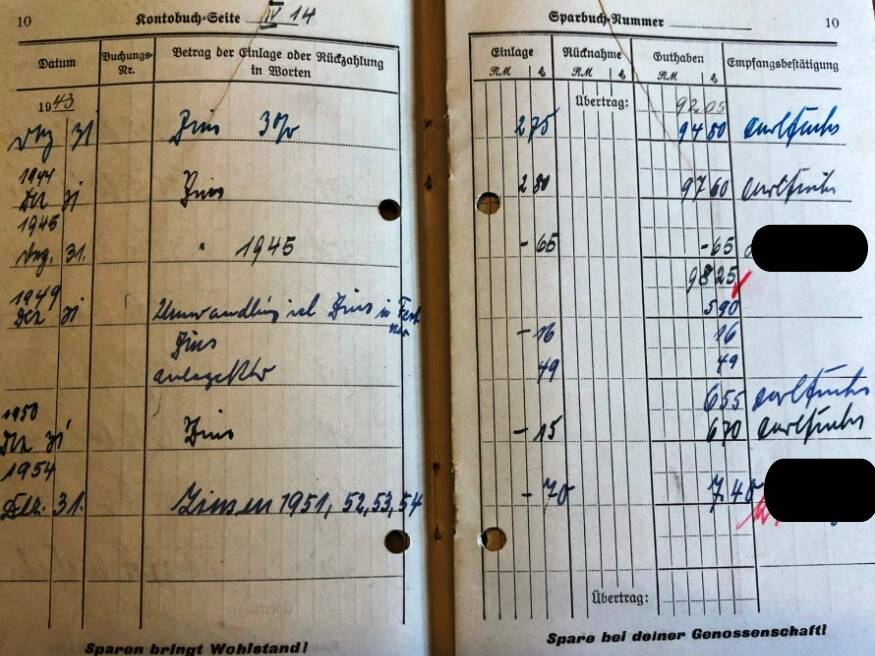 10 Kontobuch-Seite IV 14
Datum Buchungs-Nr. Betrag der Einlage oder Rückzahlung in Worten
1943
Dez 31 Zins 3%
1944
Dez 31 Zins
1945
Dez. 31. " 1945
1949
Dez 31 Umwandlung incl Zins in
Zins
1950
Dez 31 Zins
1954
Dez. 31. Zinsen 1951, 52, 53, 54
Sparen bringt Wohlstand!
Sparbuch-Nummer 10
Einlage Rücknahme Guthaben Empfangsbestätigung
RM ₰ RM ₰ RM ₰
Übertrag: 92.05
2 75 94 80
2 80 97 60
- 65 - 65
98 25
5 90
- 16 16
49 49
6 55
- 15 6 70
- 70 7.40
Übertrag:
Spare bei deiner Genossenschaft!